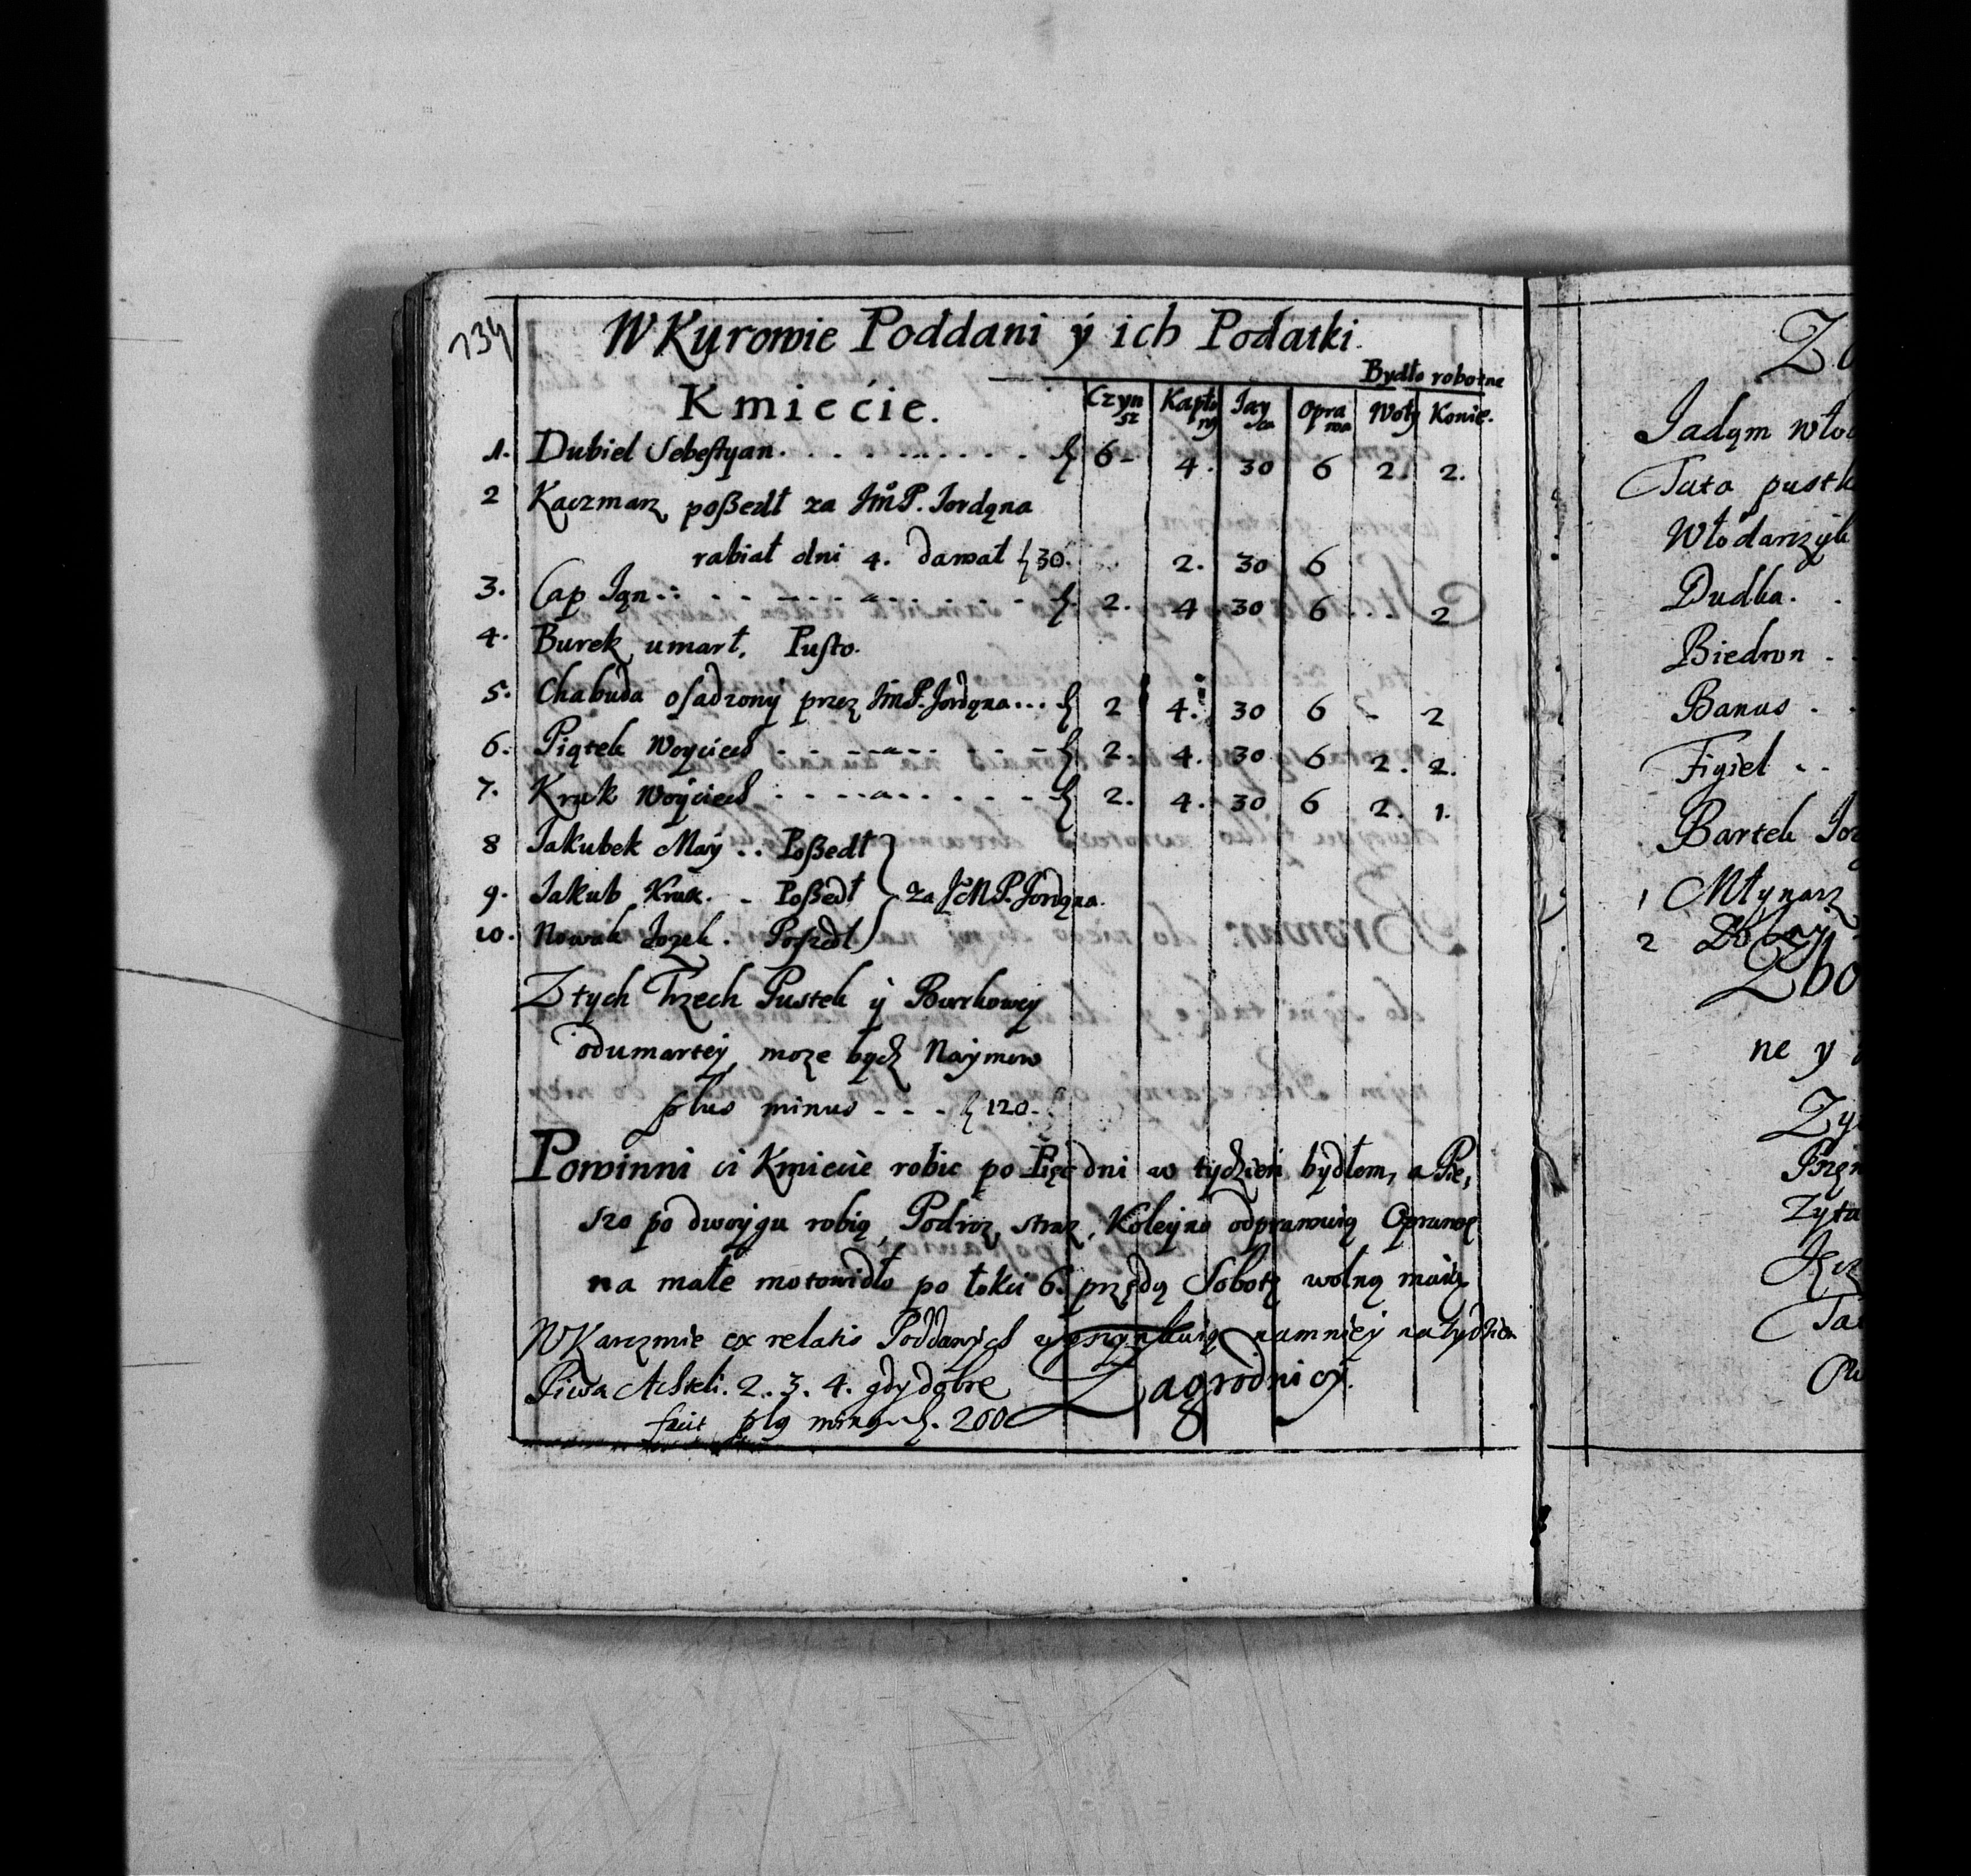 134
W Kurowie Poddani ÿ ich Podatki.
Bydło robotne
Kmiećie. Czynsz Kapłony Jayca Oprawa Woły Konie.
1. Dubiel Sebestyan. 6 4. 30 6 2. 2.
2 Kaczmarz poßedł za JmP. Jordana
rabiał dni 4. dawał 30. 2. 30 6
3. Cap Jan 2. 4 30 6 2
4. Burek umarł, Pusto.
5. Chabuda osadzony przez JmP. Jordana... 2 4. 30 6 - 2
6. Piątek Woyciech 2. 4. 30 6 2. 2.
7. Kruk Woyciech 2. 4. 30 6 2. 1.
8 Jakubek May .. Poßedł
9. Jakub Kruk. - Poßedł za JMP. Jordana.
10. Nowak Jozek. Poszedł
Z tych Trzech Pustek ÿ Burkowey
odumartey może bydź Naymow
plus minus - - - 120.
Powinni ci Kmiecie robic po Pięć dni w tydzień bydłem, a Pie,
szo po dwoygu robią, Podroz, straz, Koleyno odprawuią Oprawę
na małe motowidło po łokci 6. przędą Sobotę wolną maią
W Karczmie ex relatis Poddanych wyszynkuią namniey na tydzien
Piwa Achteli. 2. 3. 4. gdy dobre
Zagrodnicy.
facit plq minq 260
Jadąm
Tata
Włodarzyk
Dudka.
Biedron
Banus
Figiel
Bartek
1 Młynarz
2
ne y